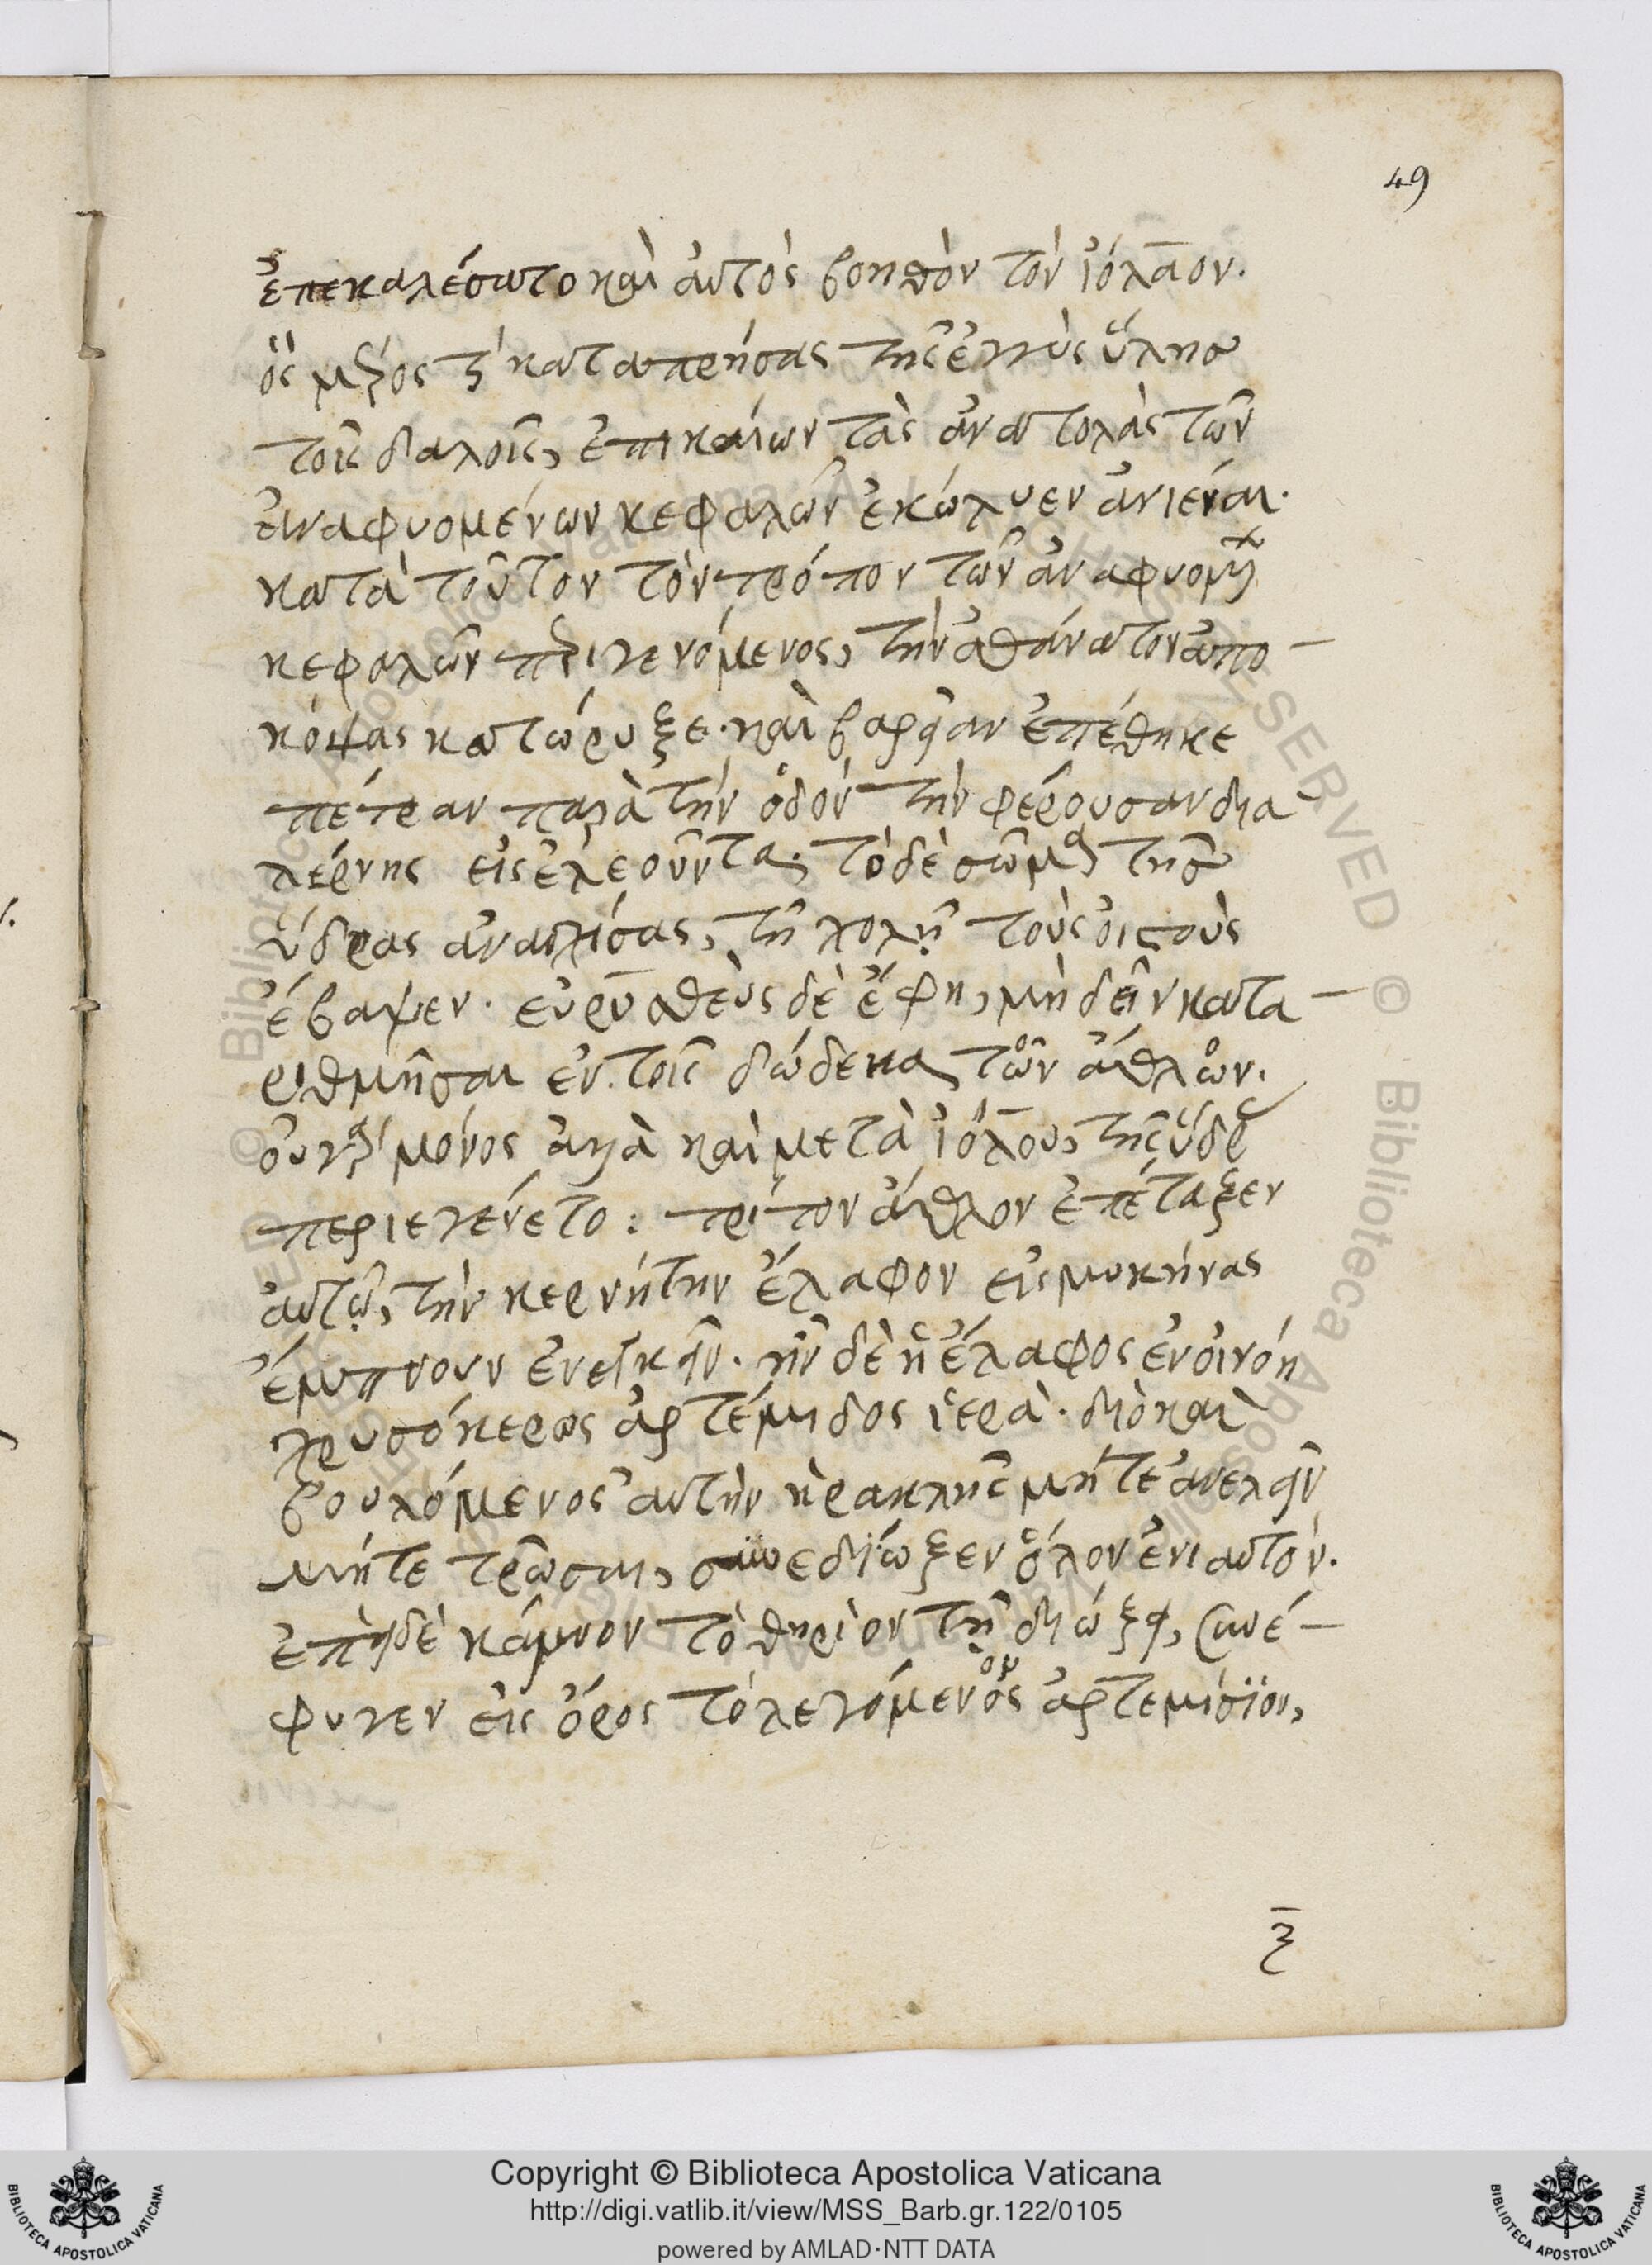 49
ἐπεκαλέσατο καὶ αὐτὸς βοηθὸν τὸν ἰόλαον.
ὃς μέρος τι καταπρήσας τῆς ἐγγὺς ὕλης
τοῖς δαλοῖς, ἐπικαίων τὰς ἀνατολὰς τῶν
ἀναφυομένων κεφαλῶν ἐκώλυεν ἀνιέναι.
κατὰ τοῦτον τὸν τρόπον τῶν ἀναφυομένων
κεφαλῶν περιγενόμενος, τὴν ἀθάνατον ἀπο–
κόψας κατώρυξε. καὶ βαρεῖαν ἐπέθηκε
πέτραν παρὰ τὴν ὁδὸν τὴν φέρουσαν δια
λέρνης εἰς ἐλεοῦντα. τὸ δὲ σῶμα τῆς
ὕδρας ἀνασχίσας, τῇ χολῇ τοὺς οἰστοὺς
ἔβαψεν. εὐρυσθεὺς δὲ ἔφη, μὴ δεῖν κατα–
ριθμῆσαι ἐν τοῖς δώδεκα τῶν ἄθλων.
οὐ γὰρ μόνος ἀλλὰ καὶ μετὰ ἰόλου, τῆς ὕδρας
περιεγένετο: τρίτον ἄθλον ἐπέταξεν
αὐτῷ, τὴν κερνήτην ἔλαφον εἰς μυκήνας
ἔμπνουν ἐνεγκεῖν. ἦν δὲ ἡ ἔλαφος ἐν οἰνόη
χρυσόκερως ἀρτέμιδος ἱερὰ. διὸ καὶ
βουλόμενος αὐτὴν ἡρακλῆς μήτε ἀνελεῖν
μήτε τρῶσαι, συνεδίωξεν ὅλον ἐνιαυτόν.
ἐπεὶ δὲ κάμνον τὸ θηρίον τῇ διώξει, συνέ–
φυγεν εἰς ὄρος τὸ λεγόμενον ἀρτεμίσϊον,
ξ
Copyright © Biblioteca Apostolica Vaticana
http://digi.vatlib.it/view/MSS_Barb.gr.122/0105
powered by AMLAD·NTT DATA
BIBLIOTECA APOSTOLICA VATICANA
BIBLIOTECA APOSTOLICA VATICANA